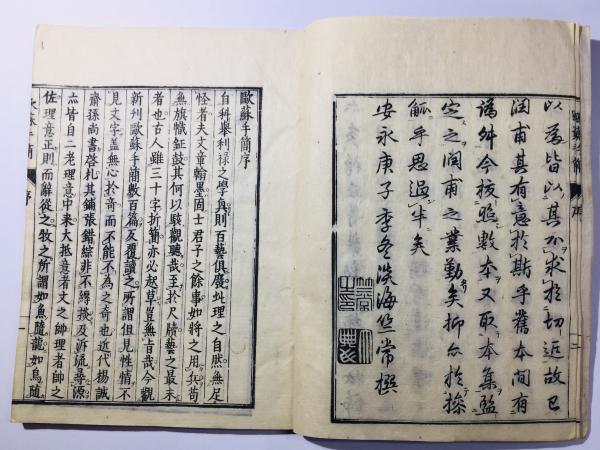 以為皆以其不求於切近故已
潤甫其有意於斯乎舊本間有
譌舛今校照數本又取本集監
定之潤甫之業勤矣抑亦於操
觚乎思過半矣
安永庚子季冬淡海竺常撰
歐蘇手簡序
自科舉利祿之學興則百藝俱廢妙理之自然無足
怪者夫文章翰墨固士君子之餘事如將之用兵苟
無旗幟鉦鼓其何以駭觀聽哉至於尺牘藝之最末
者也古人雖三十字折簡亦必起草豈無旨哉今觀
新刊歐蘇手簡數百篇反覆讀之所謂但見性情不
見文字蓋無心於奇而不能不為之奇也近代楊誠
齋孫尚書啓札其鋪張錯綜非不縟及泝流尋源
亦皆自二老理意中来大抵意者文之帥理者帥之
佐理意正則而辭從之牧之所謂如魚隨龍如鳥隨
蘇手簡 序 一